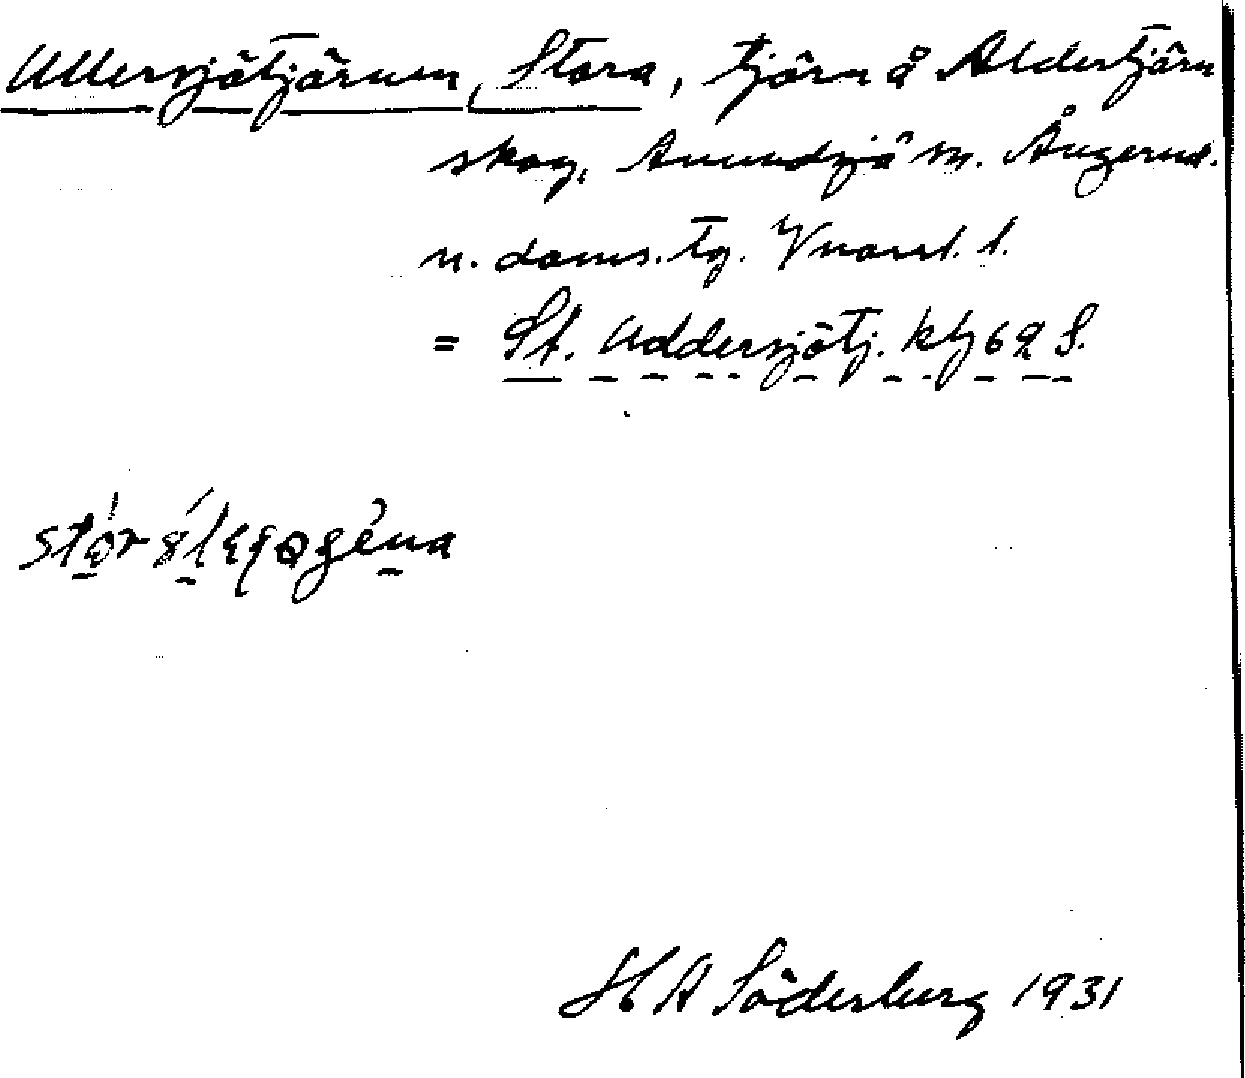 Ullersjötjärnen, Stora, tjärn å Aldertjärn
skog, Anundsjö sn. Ångerml.
n. doms. tg. Vnorrl. l.
= St. Uddersjötj. ktj 62 S.
H A Söderberg 1931